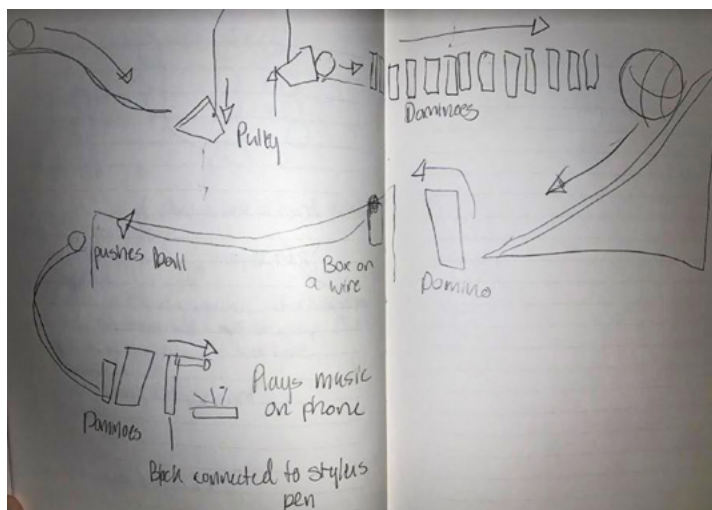 Pully
Dominoes
pushes ball
Box on
a wire
Domino
Dominoes
Plays music
on phone
Block connected to stylus
pen